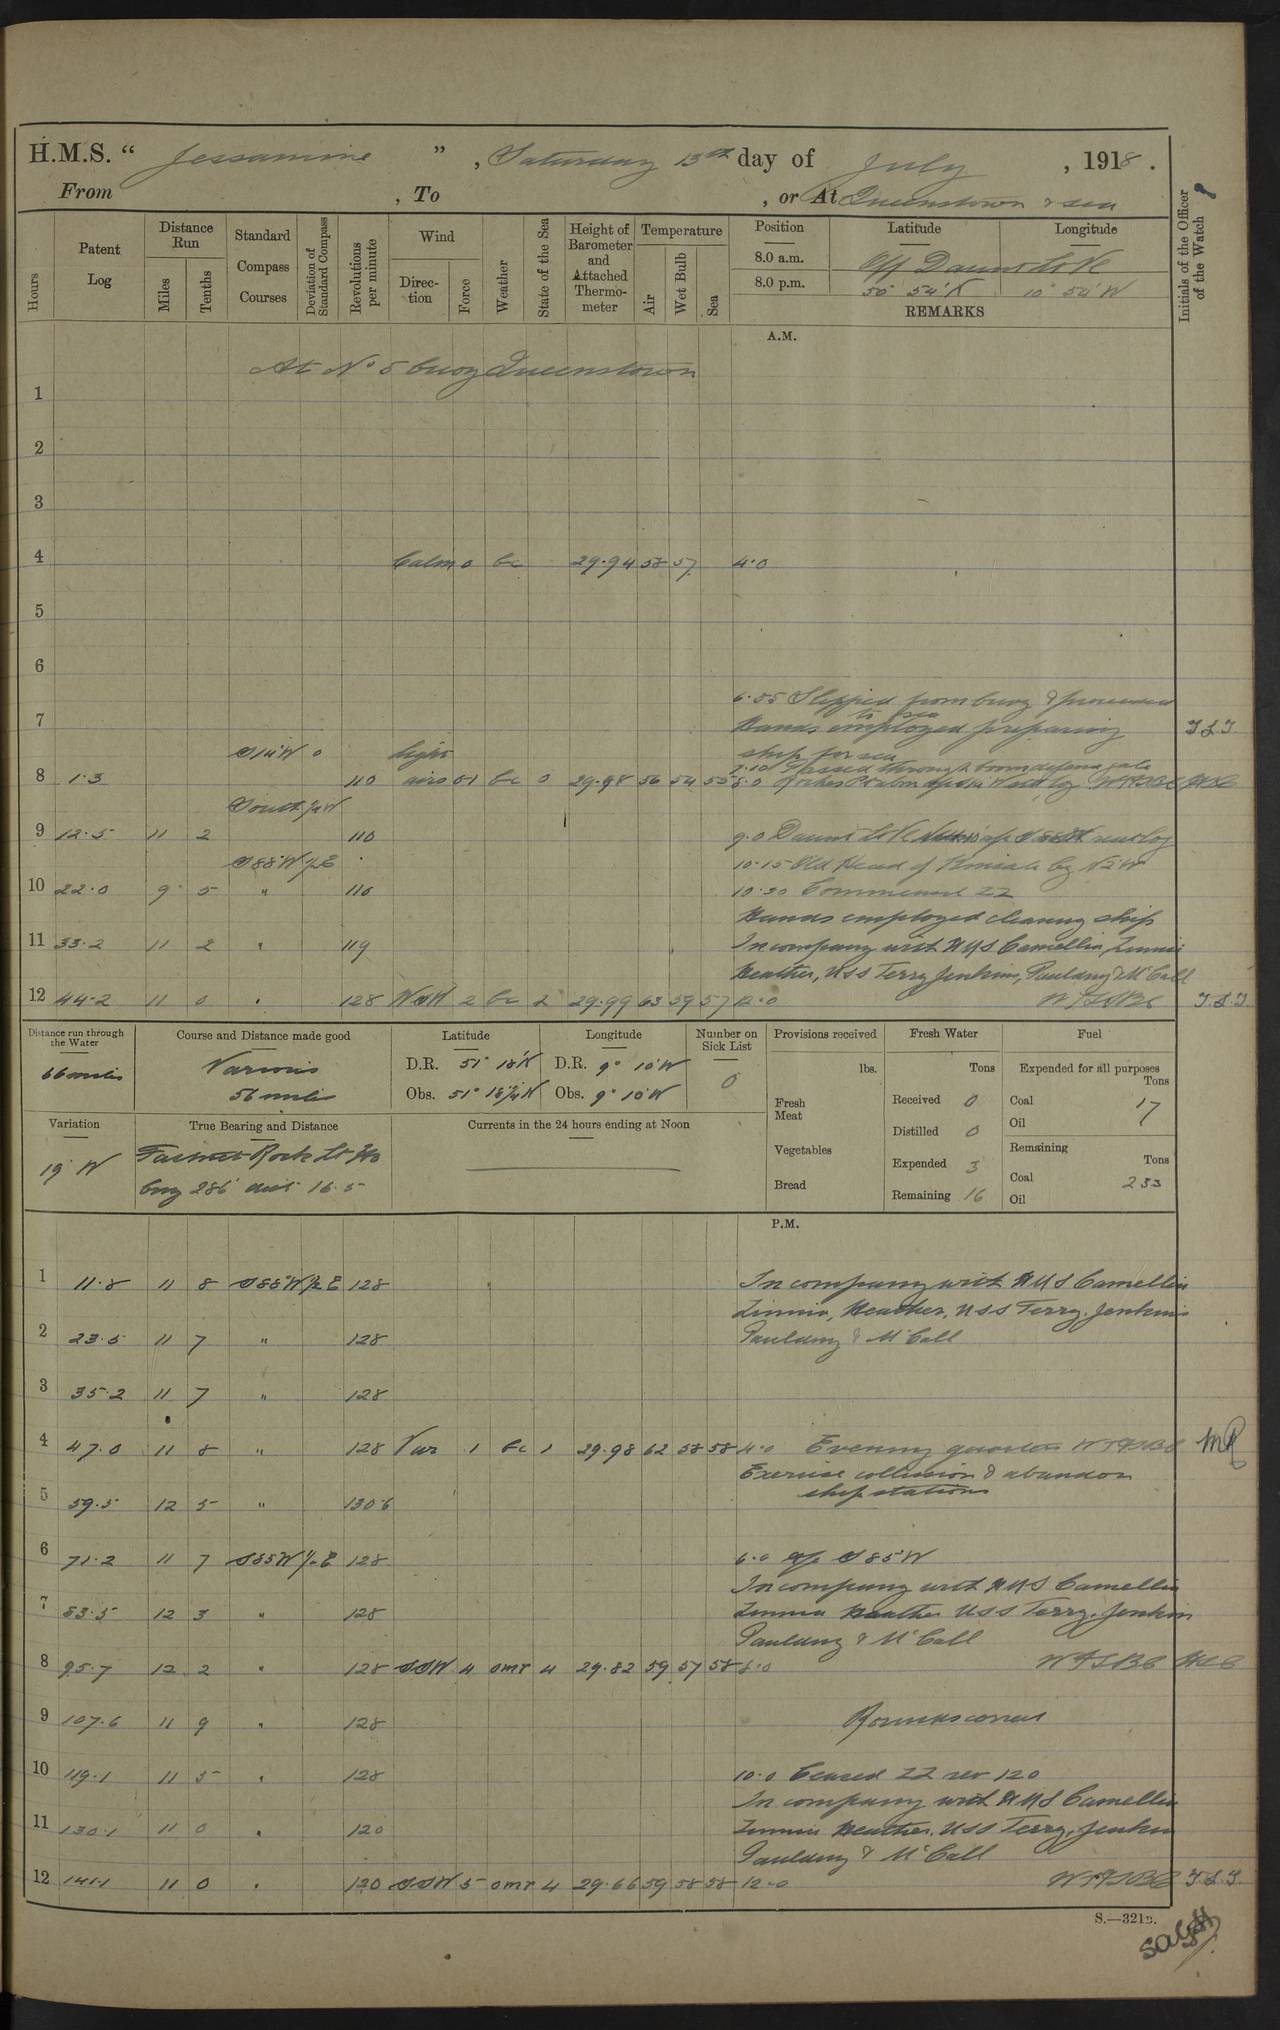 H.M.S. “ Jessamine ” , Saturday 13th day of July , 1918 .
From , To , or At Queenstown & sea
Hours
Patent Log
Distance Run
Miles
Tenths
Standard Compass Courses
Deviation of Standard Compass
Revolutions per minute
Wind
Direction
Force
Weather
State of the Sea
Height of Barometer and Attached Thermometer
Temperature
Air
Wet Bulb
Sea
Position Latitude Longitude
8.0 a.m. Off Daunt Lt Vl
8.0 p.m. 50° 54' N 10° 54' W
REMARKS
Initials of the Officer of the Watch
A.M.
At No 5 buoy Queenstown
1
2
3
4 Calm 0 bc 29.94 58 57 4.0
5
6
6.55 Slipped from buoy & proceeded
to sea
7 Hands employed preparing
ship for sea
S14W 0 light
7.10 Passed through boom defence gate
8 1.3 110 airs 0-1 bc 0 29.98 56 54 55 8.0
South
9 12.5 11 2 110 9.0 Daunt Lt Vl
S88°W ½ E 10.15 Old Head of Kinsale
10 22.0 9 5 " 110 10.30 Commenced ZZ
Hands employed cleaning ship
11 33.2 11 2 " 119 In company with HMS Camellia, Zinnia
Heather, USS Terry, Jenkins, Paulding & McCall
12 44.2 11 0 " 128 WSW 2 bc 2 29.99 63 59 57 12.0
Distance run through the Water
66 miles
Course and Distance made good
Various
56 miles
Latitude Longitude
D.R. 51° 18' N D.R. 9° 10' W
Obs. 51° 18½' N Obs. 9° 10' W
Number on Sick List
0
Provisions received
lbs.
Fresh Meat
Vegetables
Bread
Fresh Water
Tons
Received 0
Distilled 0
Expended 3
Remaining 16
Fuel
Expended for all purposes
Tons
Coal 17
Oil
Remaining
Tons
Coal 233
Oil
Variation
19° W
True Bearing and Distance
Fastnet Rock Lt Ho
brg 286° dist 16.5
Currents in the 24 hours ending at Noon
P.M.
1 11.8 11 8 S88°W ½ E 128 In company with HMS Camellia
Zinnia, Heather, USS Terry, Jenkins
2 23.5 11 7 " 128 Paulding & McCall
3 35.2 11 7 " 128
4 47.0 11 8 " 128 Var 1 bc 1 29.98 62 58 58 4.0 Evening quarters
Exercise collision & abandon
5 59.5 12 5 " 130.6 ship stations
6 71.2 11 7 S85W ½ E 128 6.0 a/c S85W
In company with HMS Camellia
7 83.5 12 3 " 128 Zinnia Heather USS Terry, Jenkins
Paulding & McCall
8 95.7 12 2 " 128 SSW 4 omr 4 29.82 59 57 58 8.0
9 107.6 11 9 " 128 Rounds correct
10 119.1 11 5 " 128 10.0 Ceased ZZ rev 120
In company with HMS Camellia
11 130.1 11 0 " 120 Zinnia Heather, USS Terry, Jenkins
Paulding & McCall
12 141.1 11 0 " 120 SSW 5 omr 4 29.66 59 58 58 12.0
S.—321B.